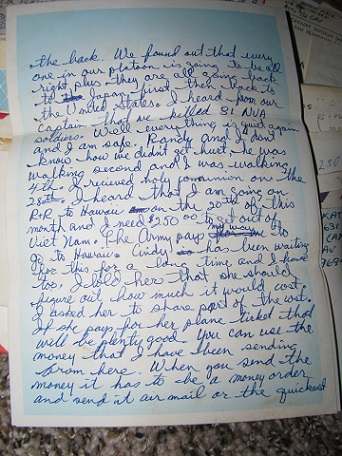 the back. We found out that every
one in our platoon is going to be all
right plus they are all going back
to Japan first then back to
the United States. I heard from our
captain that we killed 81 NVA
soldiers. Well everything is quiet again
and I am safe. Randy and I don't
know how we didnt get hurt he was
walking second and I was walking
4th. I recieved holy communion on the
28th. I heard that I am going on
R&R to Hawaii on the 20th of this
month and I need $250.00 to get out of
Viet Nam. The Army pays my way to
go to Hawaii. Cindy has been waiting
for this for a long time and I have
too. I told her that she should
figure out how much it would cost.
I asked her to share part of the cost.
If she pays for her plane ticket that
will be plenty good. You can use the
money that I have been sending
from here. When you send the
money it has to be a money order
and send it air mail or the quickest